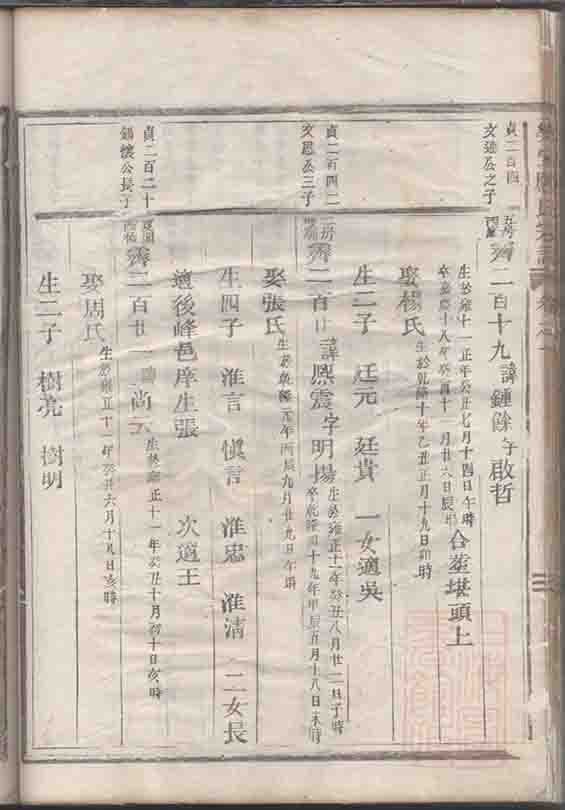 貞二百四
文廷公之子
五房
齊二百十九 諱鍾餘 字啟哲
生於雍正十一年癸丑七月十四日午時
卒嘉慶十八年癸酉十一月廿六日辰時
合塟堪頭上
娶楊氏 生於乾隆十年乙丑正月十九日卯時
生二子 廷元 廷貴 一女適吳
貞二百四二
文恩公三子
二房
齊二百廿 諱熙震 字明揚
生於雍正十一年癸丑八月廿二日子時
卒乾隆四十九年甲辰五月十八日未時
娶張氏 生於乾隆元年丙辰九月廿九日午時
生四子 淮言 慎言 淮忠 淮清 二女長
適後峰邑庠生張 次適王
貞二百二十
錫懷公長子
齊二百廿一 諱尚 生於雍正十一年癸丑十月初十日亥時
娶周氏 生於雍正十一年癸丑六月十八日亥時
生二子 樹亮 樹明